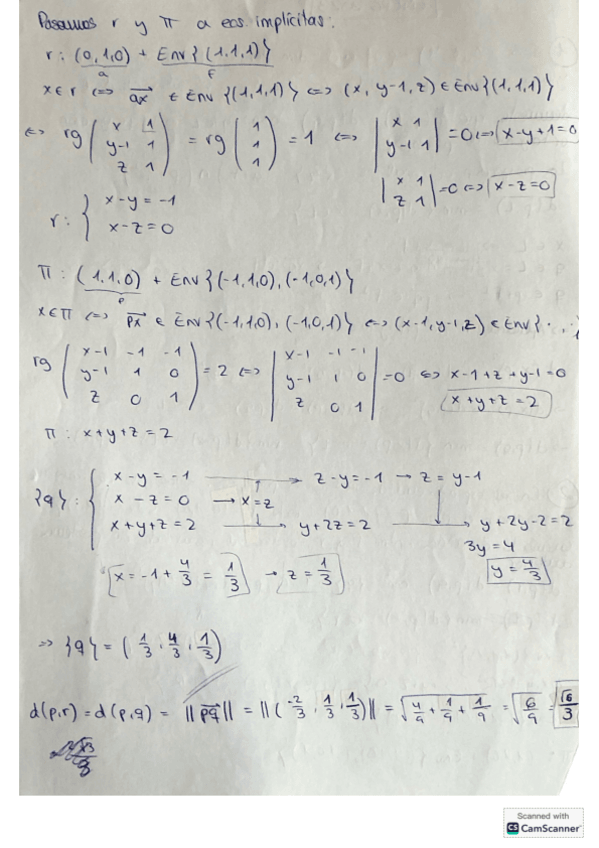 Pasamos r y π a ecs. implícitas:
r: (0,1,0) + Env{(1,1,1)}
a F
x∈r ⇔ ax⃗ ∈ Env {(1,1,1)} ⇔ (x, y-1, z) ∈ Env{(1,1,1)}
⇔ rg (x 1 / y-1 1 / z 1) = rg (1 / 1 / 1) = 1 ⇔ |x 1 / y-1 1| = 0 ⇔ x-y+1=0
|x 1 / z 1| = 0 ⇔ x-z=0
r: { x-y=-1
x-z=0
π: (1,1,0) + Env{(-1,1,0), (-1,0,1)}
p
x∈π ⇔ px⃗ ∈ Env{(-1,1,0), (-1,0,1)} ⇔ (x-1, y-1, z) ∈ Env{...}
rg (x-1 -1 -1 / y-1 1 0 / z 0 1) = 2 ⇔ |x-1 -1 -1 / y-1 1 0 / z 0 1| = 0 ⇔ x-1+z+y-1=0
x+y+z=2
π: x+y+z=2
{q}: { x-y=-1 → z-y=-1 → z=y-1
x-z=0 → x=z
x+y+z=2 → y+2z=2 → y+2y-2=2
3y=4
x=-1+4/3=1/3 → z=1/3 y=4/3
⇒ {q} = (1/3, 4/3, 1/3)
d(p,r) = d(p,q) = ||pq⃗|| = ||(-2/3, 1/3, 1/3)|| = √(4/9+1/9+1/9) = √(6/9) = √6/3
Scanned with
CS CamScanner